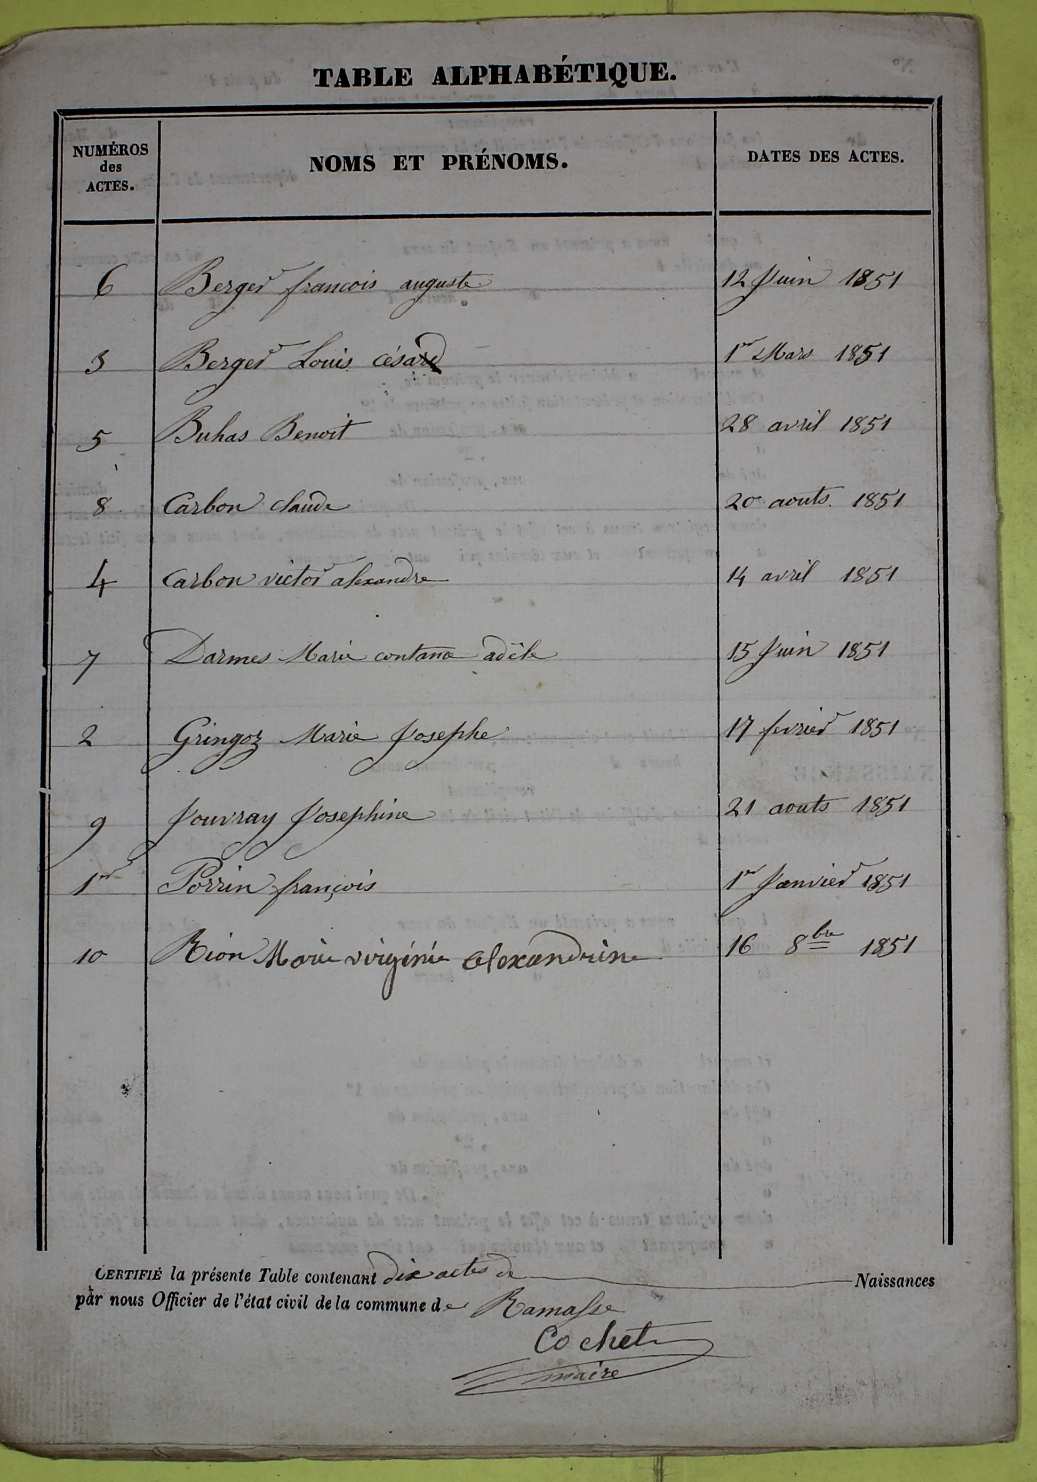 TABLE ALPHABÉTIQUE.
NUMÉROS des ACTES. NOMS ET PRÉNOMS. DATES DES ACTES.
6 Berger francois auguste 12 Juin 1851
3 Berger Louis César 1er Mars 1851
5 Buhas Benoit 28 avril 1851
8 Carbon claude 20 aouts. 1851
4 Carbon victor alexandre 14 avril 1851
7 Darmes Marie contance adèle 15 Juin 1851
2 Gringoz Marie Josephe 17 fevrier 1851
9 Jouvray Josephine 21 aouts 1851
1er Perrin françois 1er Janvier 1851
10 Rion Marie virginie alexandrine 16 8bre 1851
CERTIFIÉ la présente Table contenant dix actes de Naissances
par nous Officier de l'état civil de la commune de Ramasse
Cochet
maire